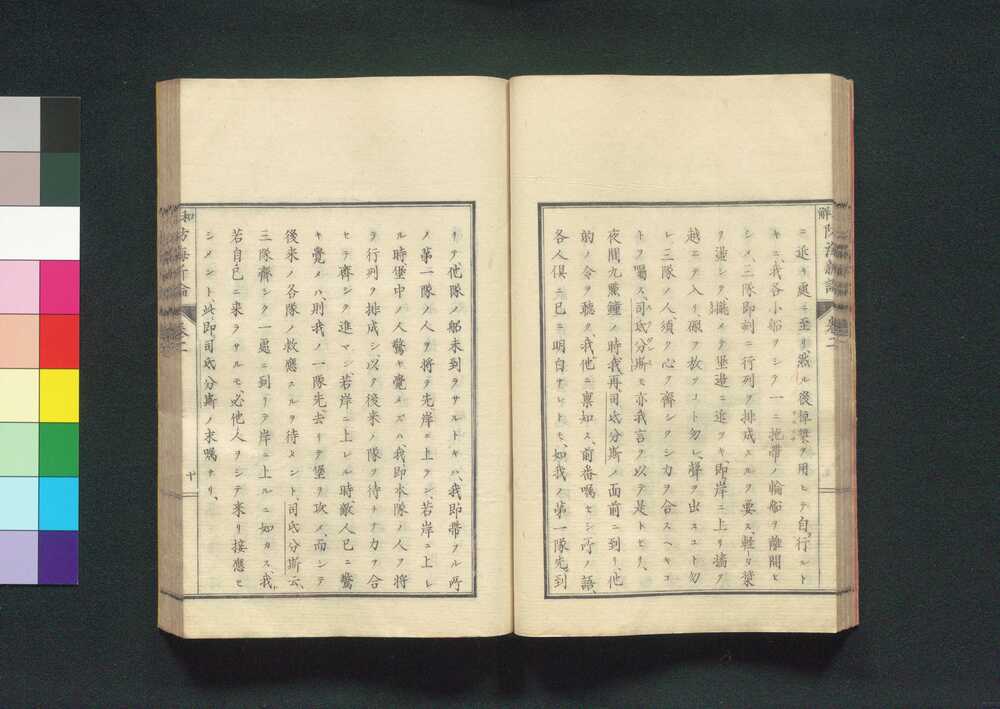 ニ近キ處ニ至リ、然ル後棹槳ヲ用ヒテ自行ルト
キニ、我各小船ヲシテ一ニ拖帶ノ輪船ヲ離開セ
シメ、三隊即刻ニ行列ヲ排成スルヲ要ス、輕々槳
ヲ盪シ攏メテ堡邊ニ近ツキ、即岸ニ上リ墻ヲ
越ニテ入リ、砲ヲ放ツコト勿レ、聲ヲ出スコト勿
レ、三隊ノ人、須ク心ヲ齊シクシ力ヲ合スヘキコ
トヲ囑ス、司氐分斯モ亦我言ヲ以テ是トセリ、
夜間九點鐘ノ時、我再司氐分斯ノ面前ニ到リ、他
的ノ令ヲ聽ク、我他ニ稟知ス、前番囑セシ所ノ語、
各人俱ニ已ニ明白ナレトモ、如我ノ第一隊先到
リテ、他隊ノ船未到ラサルトキハ、我即帶フル所
ノ第一隊ノ人ヲ將テ先岸ニ上ラン、若岸ニ上レ
ル時堡中ノ人驚キ覺メズハ、我即本隊ノ人ヲ將
テ行列ヲ排成シ、以テ後来ノ隊ヲ待チ、力ヲ合
セテ齊シク進マン、若岸ニ上レル時、敵人已ニ驚
キ覺メハ、則我ノ一隊先去リテ堡ヲ攻メ、而シテ
後来ノ各隊ノ救應スルヲ待メント、司氐分斯云、
三隊齊シク一處ニ到リテ岸ニ上ルニ如カス、我
若自已ニ来ラサルモ、必他人ヲシテ来リ接應セ
シメント、此即司氐分斯ノ求囑ナリ、
卷二
十